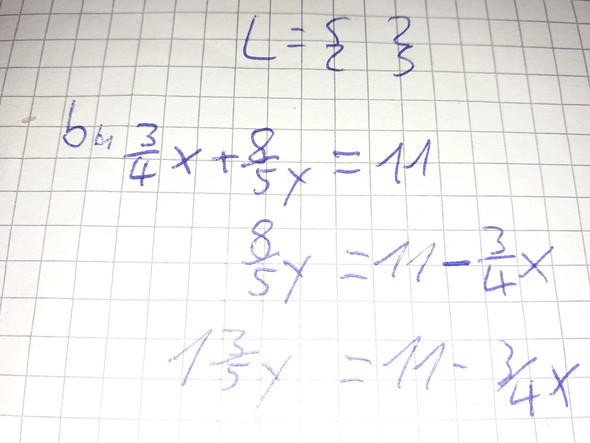 L = { }
b) 3/4 x + 8/5 y = 11
8/5 y = 11 - 3/4 x
1 3/5 y = 11 - 3/4 x